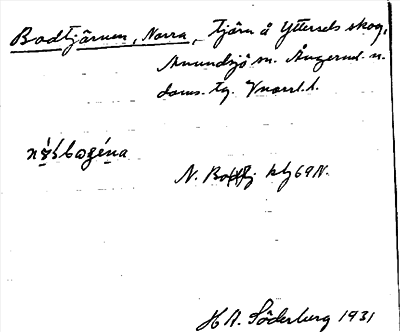 Bodtjärnen, Norra, tjärn å Yttersels skog,
Anundsjö sn. Ångerml. n.
doms. tg. Vnorrl. l.
N. Bodtj kbg 69 N.
H A. Söderberg 1931